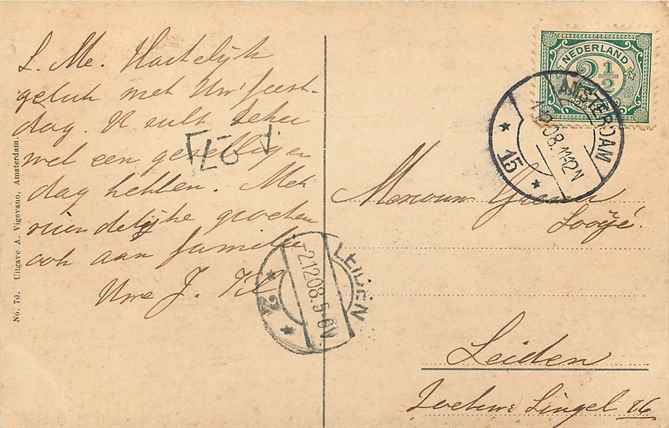 L. Me. Hartelijk
geluk met Uw feest-
dag. U zult zeker
wel een gezellig en
dag hebben. Met
vriendelijke groeten
ook aan familie
Uwe J.
No. 70. Uitgave A. Vigevano, Amsterdam.
NEDERLAND
2½
AMSTERDAM
15
LEIDEN
2 12 08. 5-6V
2
Mevrouw
Leiden
Singel 26